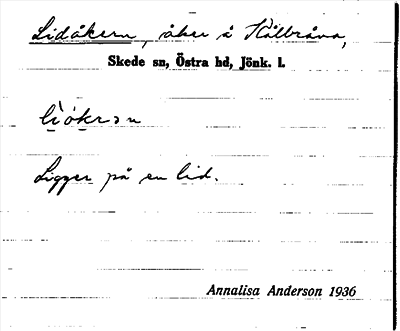 Lidåkern, åker å Kålbråna,
Skede sn, Östra hd, Jönk. l.
Ligger på en lid.
Annalisa Anderson 1936